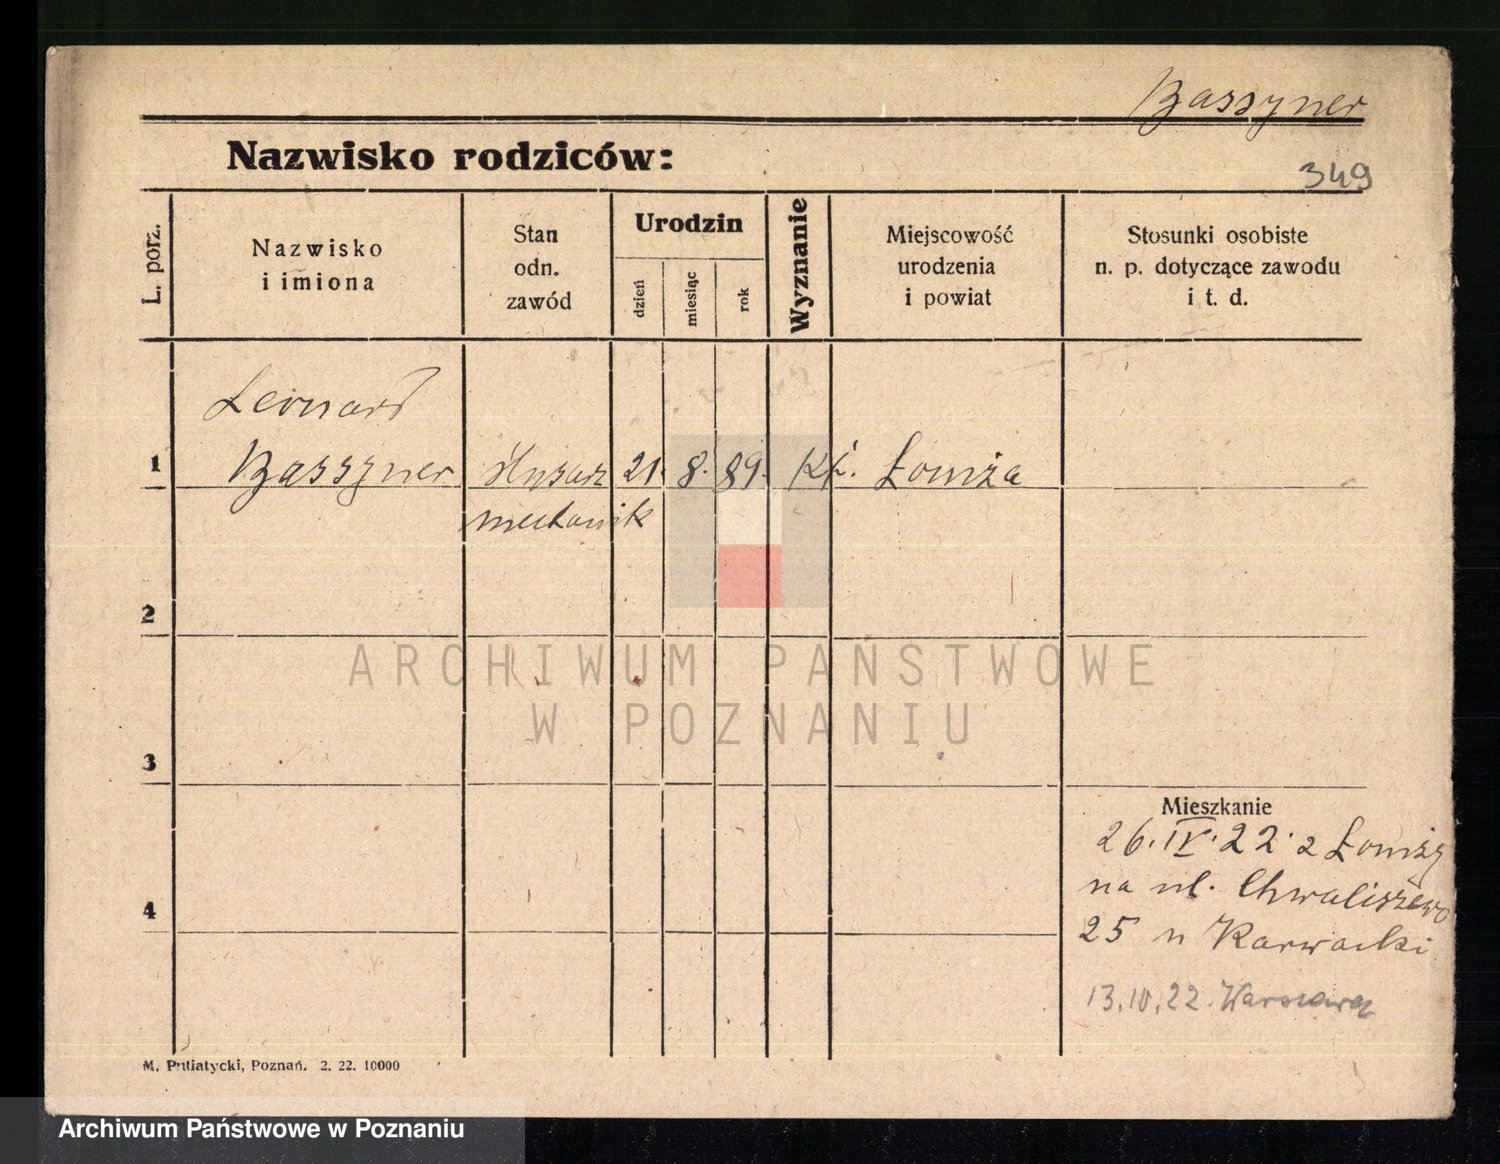 Bassyner
Nazwisko rodziców:
349
L. porz.
Nazwisko
i imiona
Stan
odn.
zawód
Urodzin
dzień
miesiąc
rok
Wyznanie
Miejscowość
urodzenia
i powiat
Stosunki osobiste
n. p. dotyczące zawodu
i t. d.
Leonard
1 Bassyner ślusarz 21. 8. 89. kk. Łomża
mechanik
2
3
Mieszkanie
26.IV.22 z Łomży
na ul. Chwaliszewo
4
25 u Karwacki
13.10.22. Warszawa
M. Putiatycki, Poznań. 2. 22. 10000
ARCHIWUM PAŃSTWOWE
W POZNANIU
Archiwum Państwowe w Poznaniu